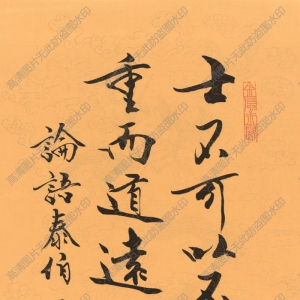 士不可以不
重而道遠
論語泰伯